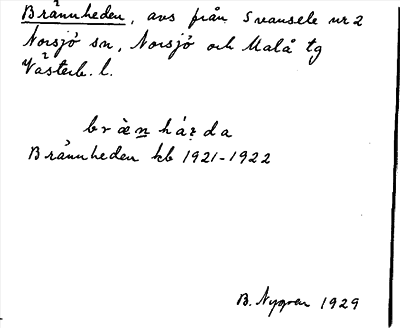 Brännheden, avs från Svansele nr 2
Norsjö sn, Norsjö och Malå tg
Västerb. l.
bræ̀n há̱ꝛda
Brännheden kb 1921-1922
B. Nygren 1929